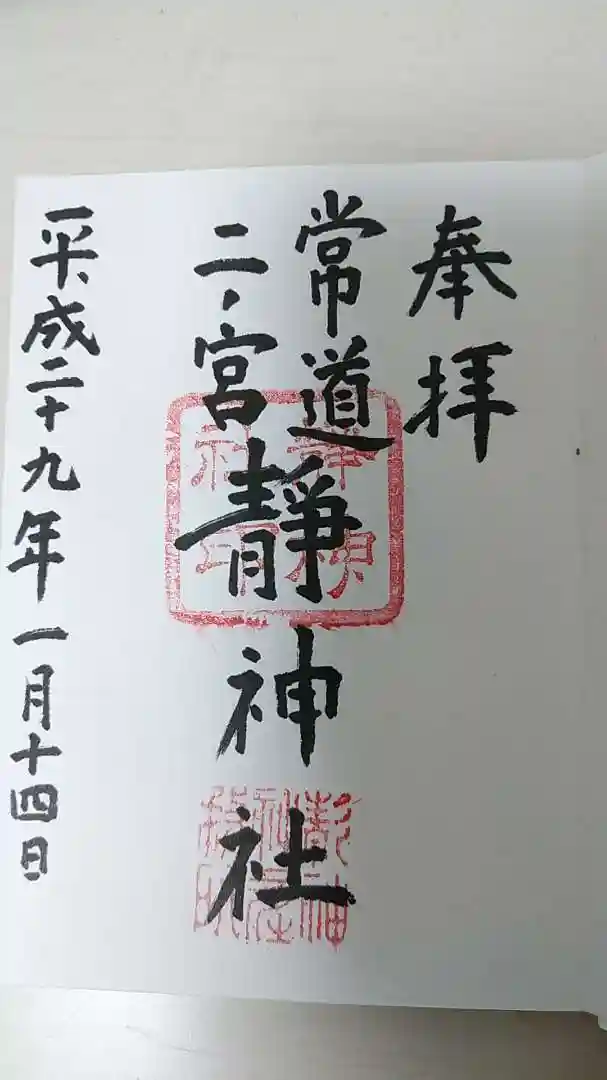 奉拝
常道
二ノ宮
靜神社
平成二十九年一月十四日